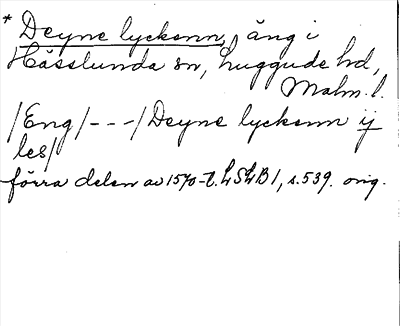 * Deyne lyckenn, äng i
Hässlunda sn, Luggude hd,
Malm. l.
/Eng/---/Deyne lyckenn ij
les/
förra delen av 1570-t. LSLB 1, s. 539. orig.